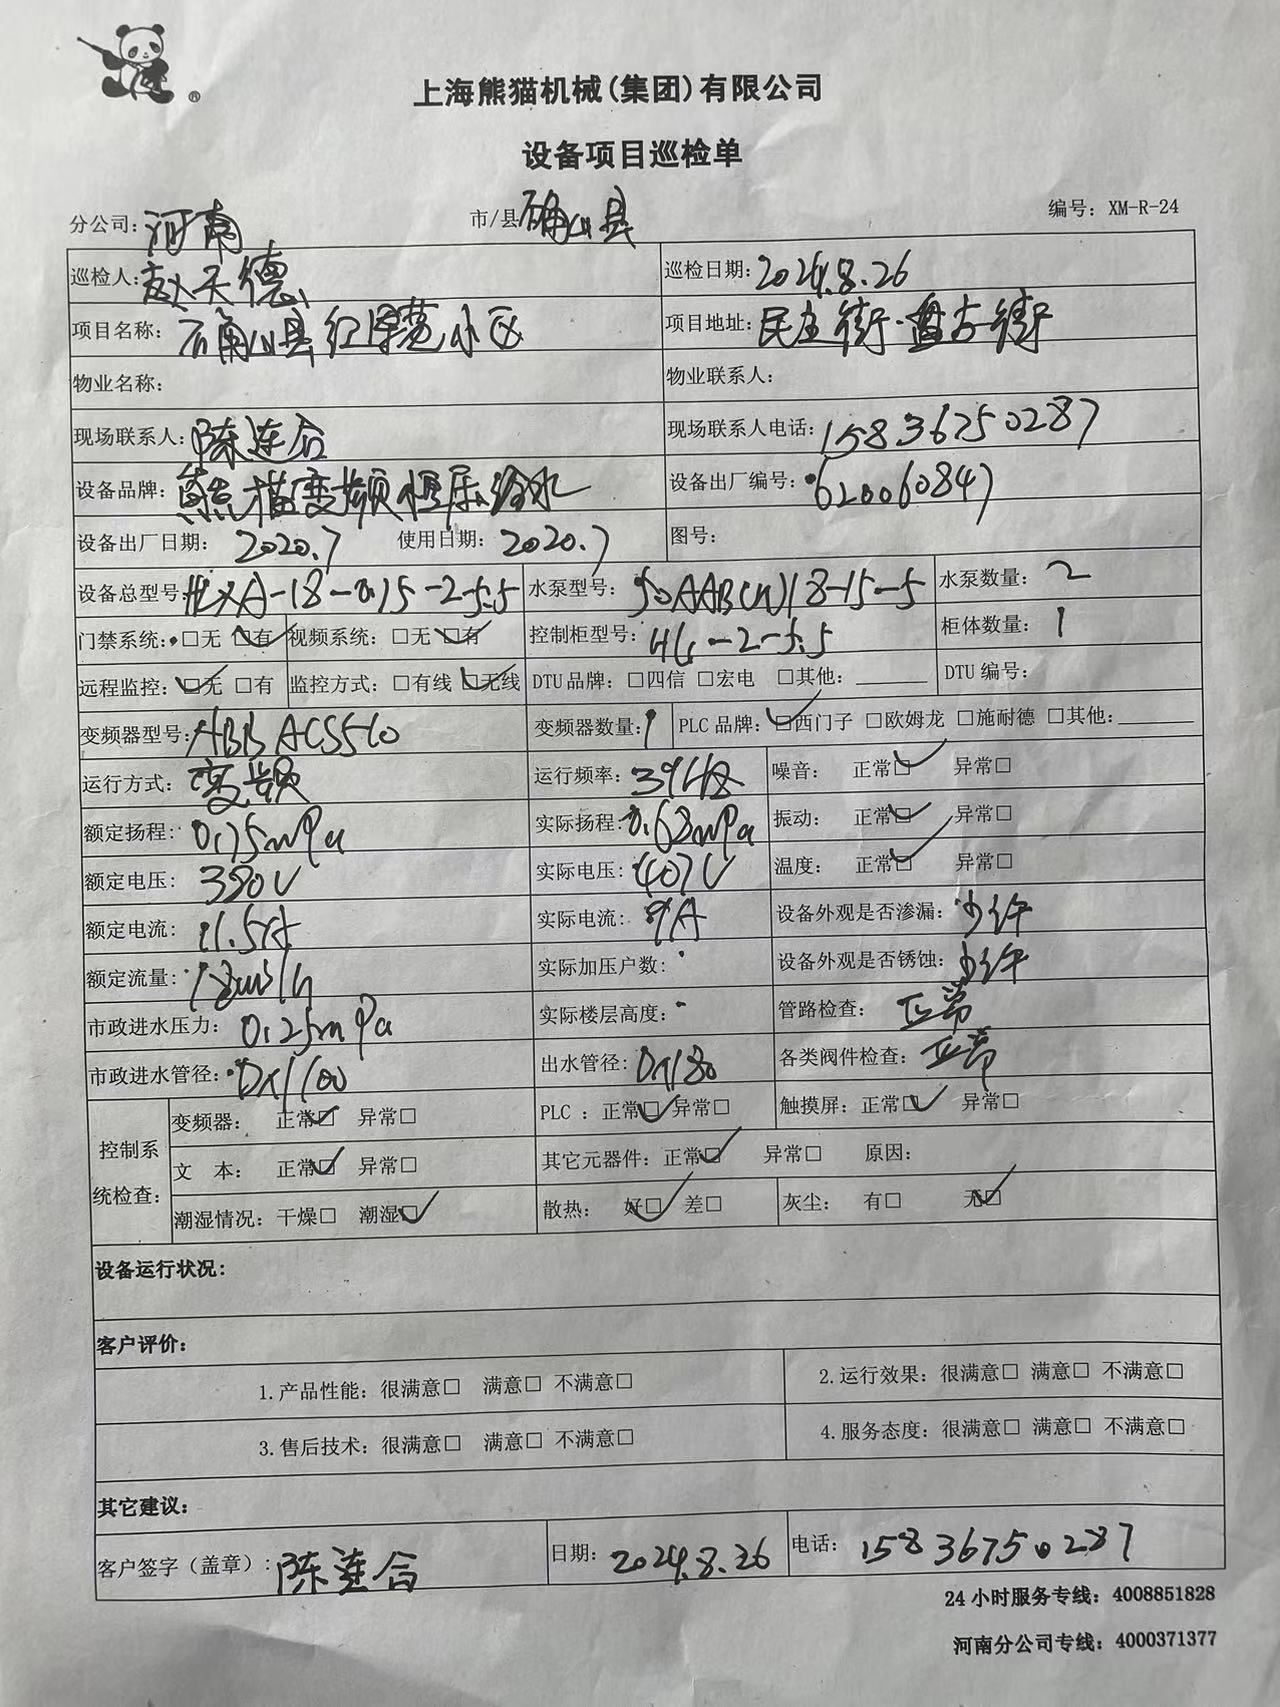 ®
上海熊猫机械(集团)有限公司
设备项目巡检单
分公司：河南 市/县 确山县 编号：XM-R-24
巡检人：赵天德 巡检日期：2024.8.26
项目名称：确山县红泽苑小区 项目地址：民主街·盘古街
物业名称： 物业联系人：
现场联系人：陈连合 现场联系人电话：15836750287
设备品牌：熊猫变频恒压给水 设备出厂编号：620060847
设备出厂日期：2020.7 使用日期：2020.7 图号：
设备总型号：HLXA-18-0.75-2-5.5 水泵型号：50AAB(W)18-15-5 水泵数量：2
门禁系统：□无 ☑有 视频系统：□无 ☑有 控制柜型号：HG-2-5.5 柜体数量：1
远程监控：☑无 □有 监控方式：□有线 ☑无线 DTU品牌：□四信 □宏电 □其他：______ DTU编号：
变频器型号：ABB ACS510 变频器数量：1 PLC品牌：☑西门子 □欧姆龙 □施耐德 □其他：______
运行方式：变频 运行频率：39HZ 噪音： 正常☑ 异常□
额定扬程：0.75mPa 实际扬程：0.68mPa 振动： 正常☑ 异常□
额定电压：380V 实际电压：407V 温度： 正常☑ 异常□
额定电流：11.5A 实际电流：9A 设备外观是否渗漏：少许
额定流量：18m3/h 实际加压户数： 设备外观是否锈蚀：少许
市政进水压力：0.25mPa 实际楼层高度： 管路检查：正常
市政进水管径：DN100 出水管径：DN80 各类阀件检查：正常
控制系统检查： 变频器： 正常☑ 异常□ PLC ：正常☑ 异常□ 触摸屏：正常☑ 异常□
文 本： 正常☑ 异常□ 其它元器件：正常☑ 异常□ 原因：
潮湿情况：干燥□ 潮湿☑ 散热： 好☑ 差□ 灰尘： 有□ 无☑
设备运行状况：
客户评价：
1.产品性能：很满意□ 满意□ 不满意□ 2.运行效果：很满意□ 满意□ 不满意□
3.售后技术：很满意□ 满意□ 不满意□ 4.服务态度：很满意□ 满意□ 不满意□
其它建议：
客户签字（盖章）：陈连合 日期：2024.8.26 电话：15836750287
24小时服务专线：4008851828
河南分公司专线：4000371377